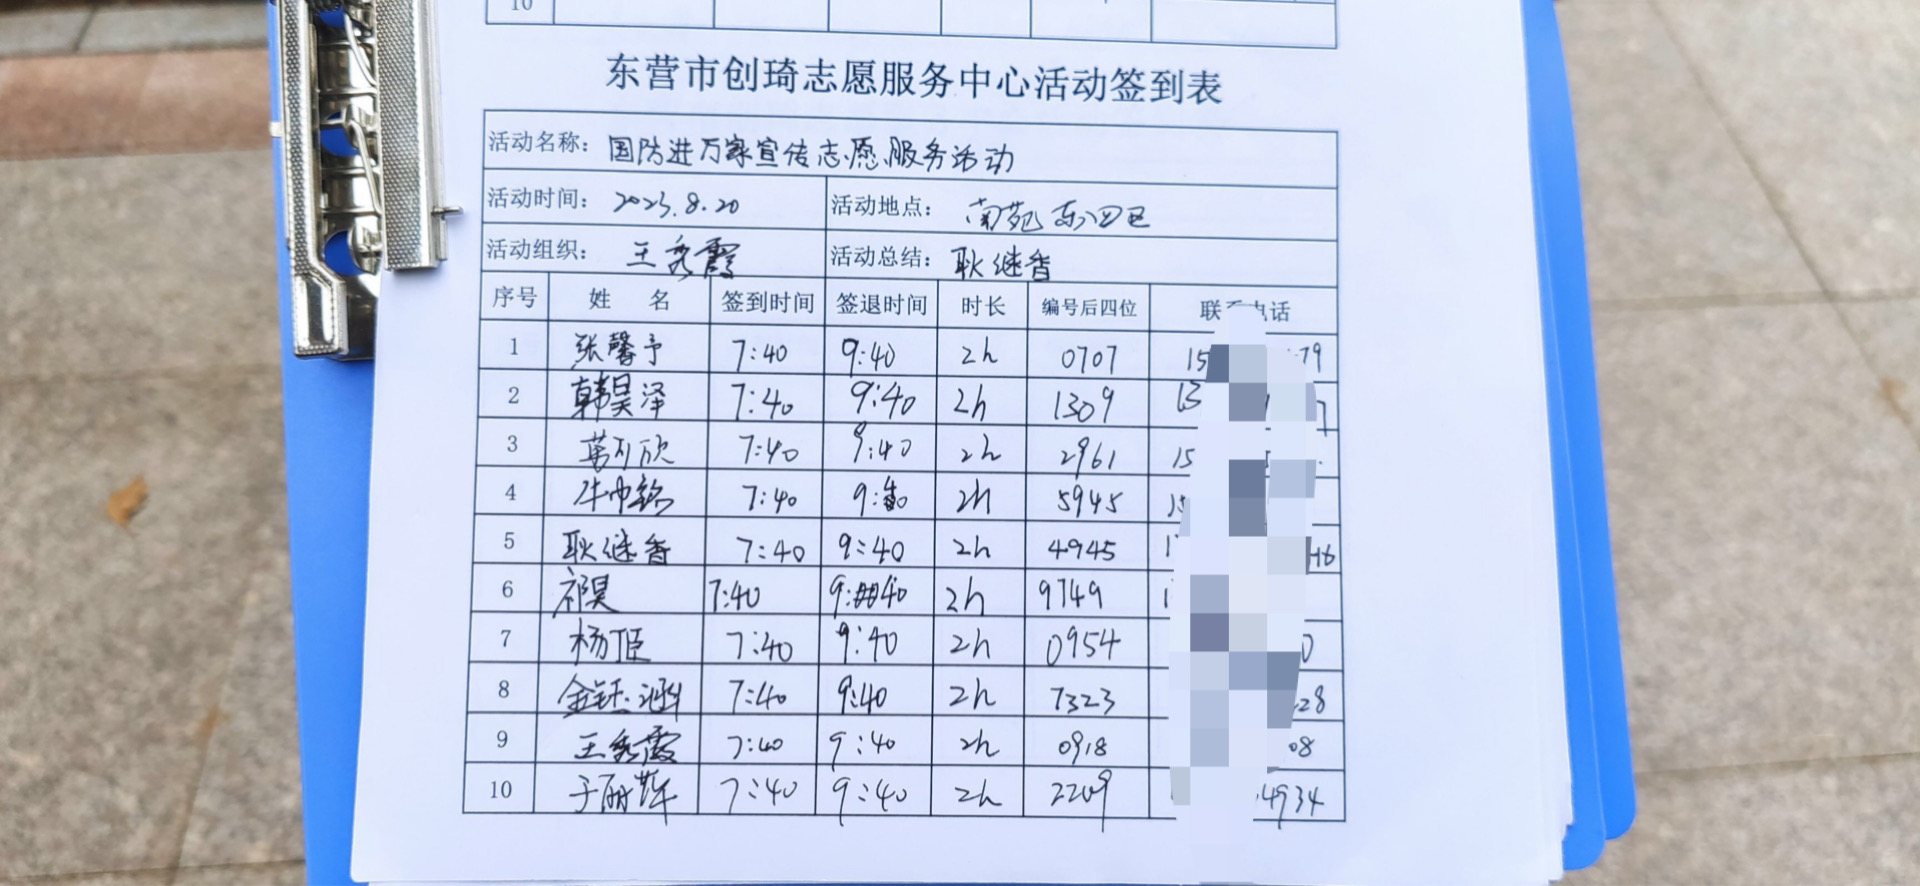 10
东营市创琦志愿服务中心活动签到表
活动名称：国防进万家宣传志愿服务活动
活动时间：2023.8.20 活动地点：南苑东四区
活动组织：王秀霞 活动总结：耿继香
序号 姓 名 签到时间 签退时间 时长 编号后四位 联 电话
1 张馨予 7:40 9:40 2h 0707 15 79
2 韩昊泽 7:40 9:40 2h 1309 13 7
3 7:40 9:40 2h 2961 15
4 7:40 9:40 2h 5945 15
5 耿继香 7:40 9:40 2h 4945 1 46
6 祁昊 7:40 9:40 2h 9749 1
7 杨 7:40 9:40 2h 0954 0
8 金钰涵 7:40 9:40 2h 7323 28
9 王秀霞 7:40 9:40 2h 0918 08
10 于丽萍 7:40 9:40 2h 2209 4934